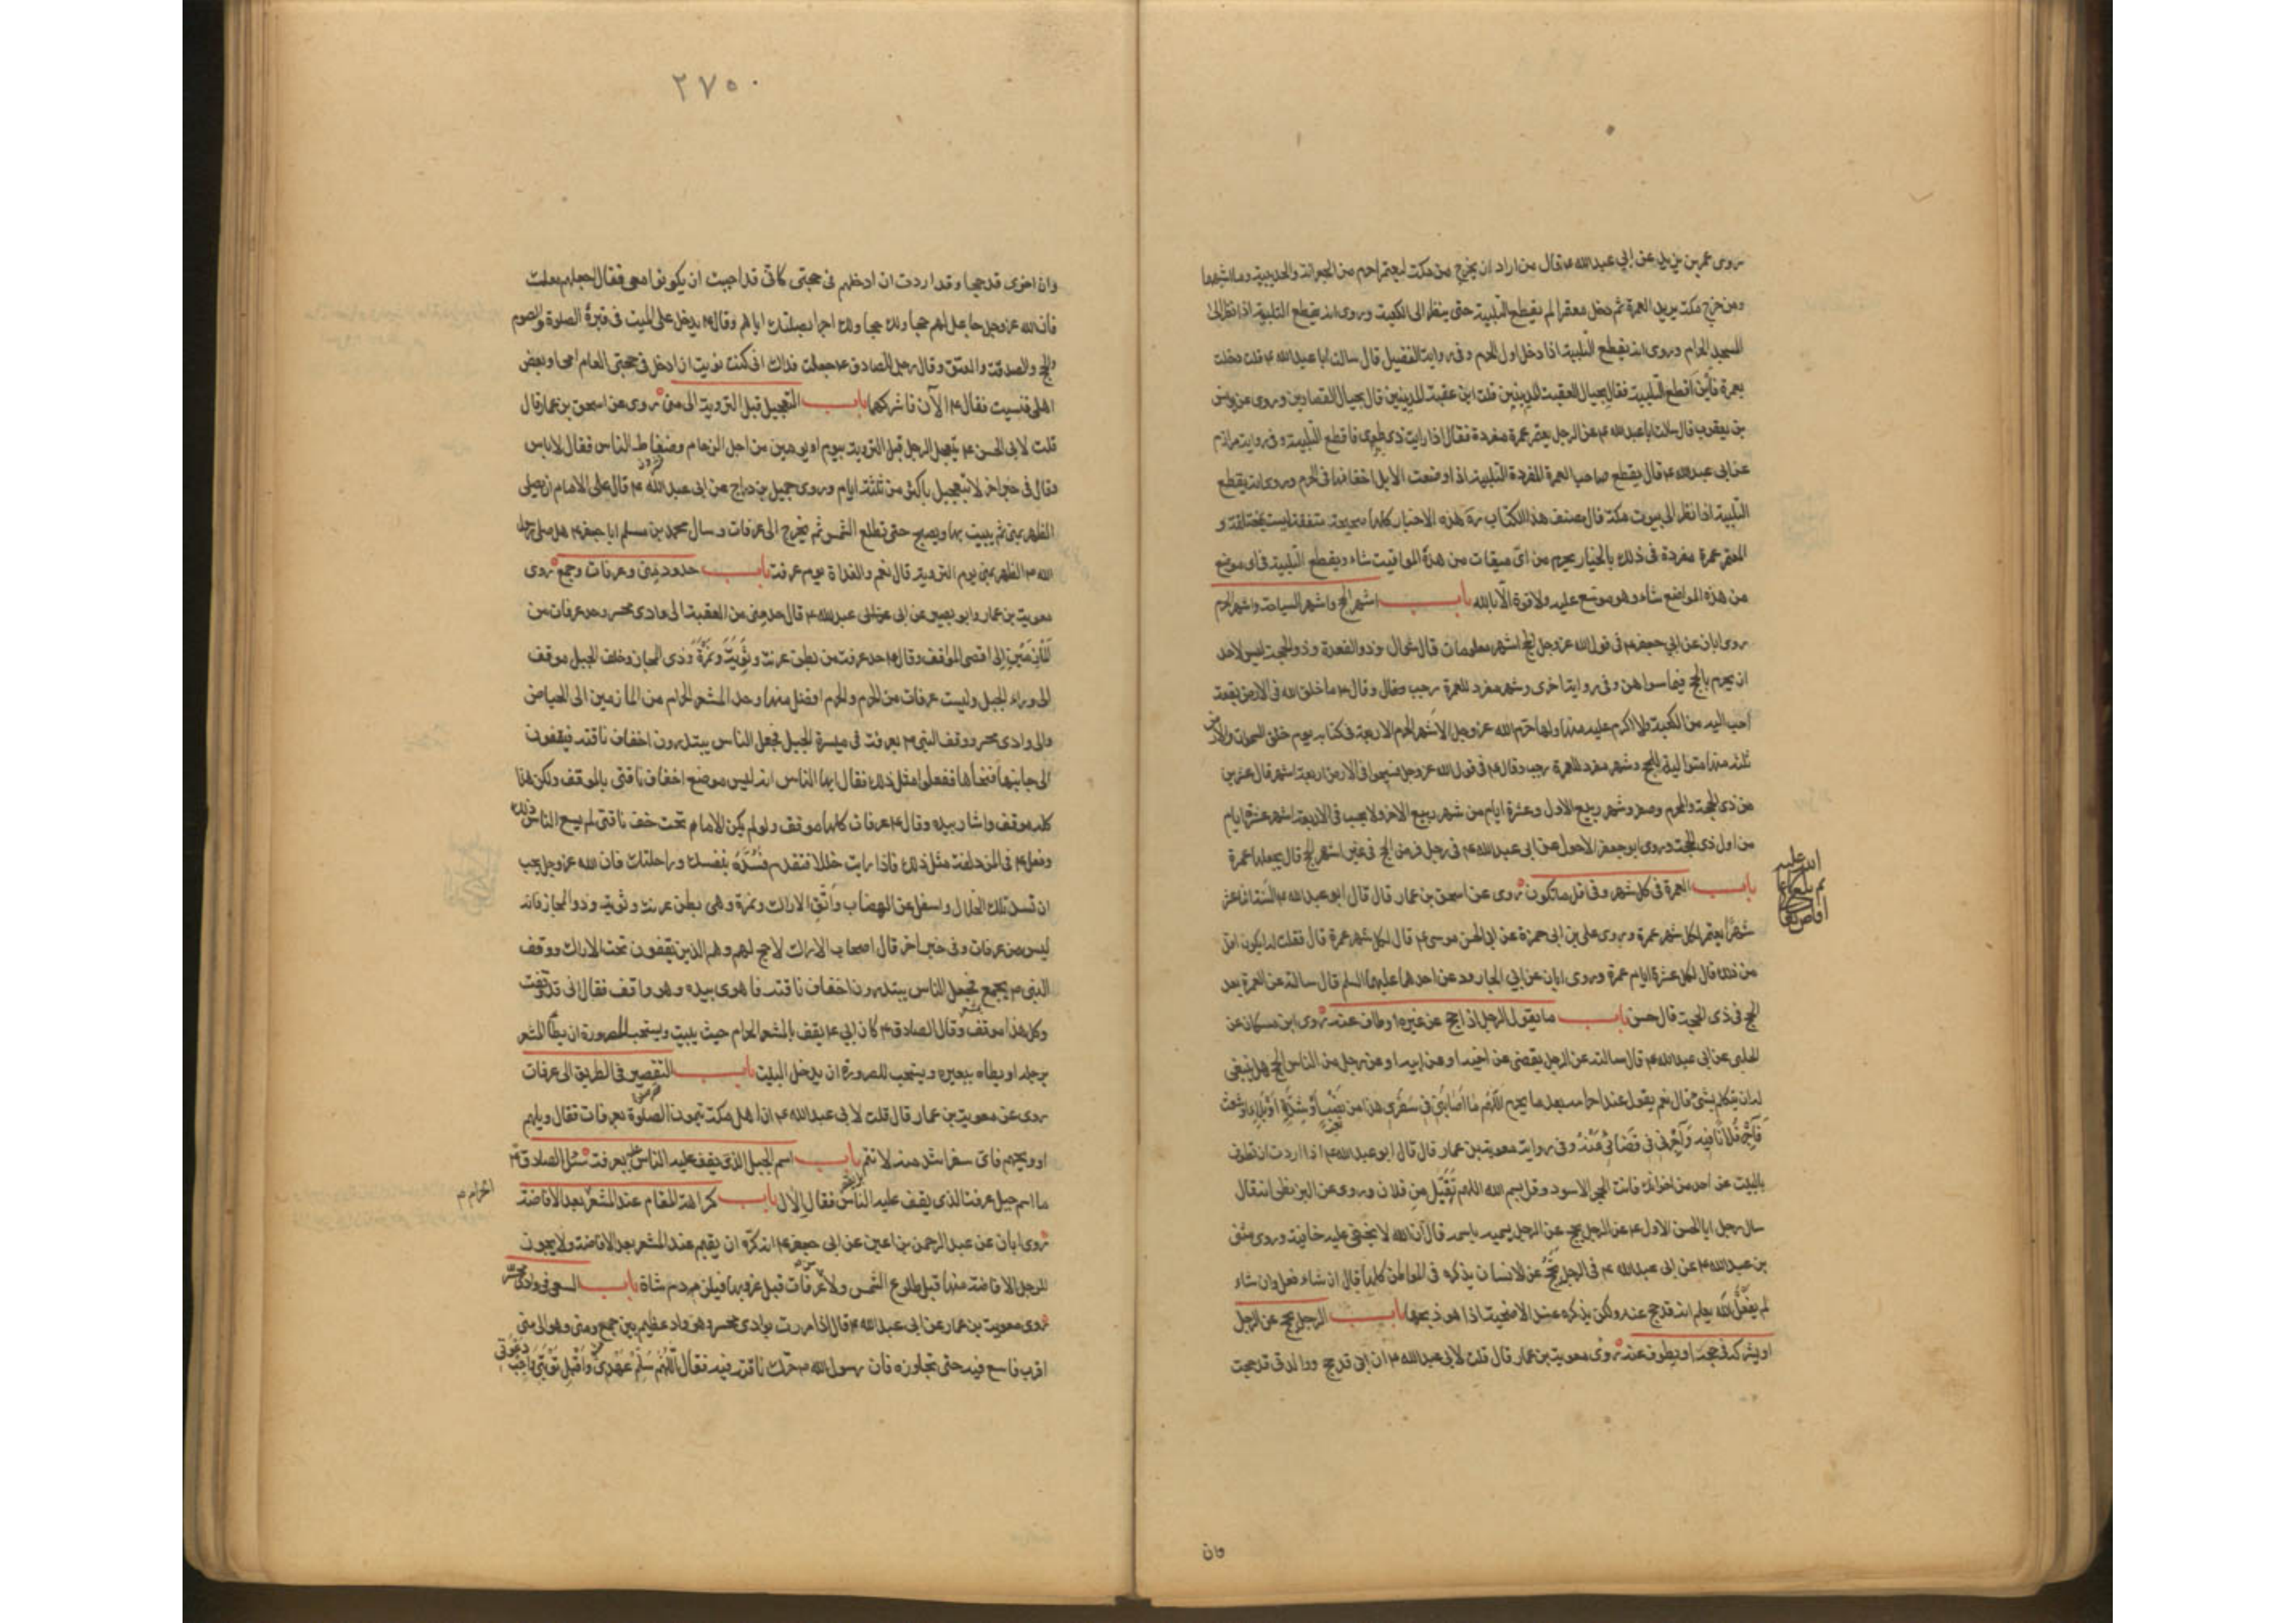 روى عمر بن يزيد عن ابي عبدالله ع قال من اراد ان يخرج من مكة ليعتمر احرم من الجعرانة والحديبية وما اشبهها
ومن خرج من مكة يريد العمرة ثم دخل معتمرا لم يقطع التلبية حتى ينظر الى الكعبة وروى انه يقطع التلبية اذا نظر الى
المسجد الحرام وروى انه يقطع التلبية اذا دخل اول الحرم وفى رواية الفضيل قال سالت ابا عبدالله ع قلت دخلت
بعمرة فاين اقطع التلبية فقال بحيال العقبة المدنيين قلت اين عقبة المدنيين قال بحيال القصارين وروى عن يونس
بن يعقوب قال سالت ابا عبدالله ع عن الرجل يعتمر عمرة مفردة فقال اذا رايت ذى طوى فاقطع التلبية وفى رواية مرازم
عن ابى عبدالله ع قال يقطع صاحب العمرة المفردة التلبية اذا وضعت الابل اخفافها فى الحرم وروى انه يقطع
التلبية اذا نظر الى بيوت مكة قال مصنف هذا الكتاب ره هذه الاخبار كلها صحيحة متفقة ليست بمختلفة و
المعتمر عمرة مفردة فى ذلك بالخيار يحرم من اى ميقات من هذه المواقيت شاء ويقطع التلبية فى اى موضع
من هذه المواضع شاء وهو موسع عليه ولا قوة الا بالله باب اشهر الحج واشهر السياحة واشهر الحرم
روى ابان عن ابي جعفر ع فى قول الله عز وجل الحج اشهر معلومات قال شوال وذو القعدة وذو الحجة ليس لاحد
ان يحرم بالحج فيما سواهن وفى رواية اخرى وشهر مفرد للعمرة رجب وقال ع ما خلق الله فى الارض بقعة
احب اليه من الكعبة ولا اكرم عليه منها ولها حرم الله عز وجل الاشهر الحرم الاربعة فى كتابه يوم خلق السموات والارض
ثلثة منها متوالية للحج وشهر مفرد للعمرة رجب وقال ع فى قول الله عز وجل فسيحوا فى الارض اربعة اشهر قال عشرين
من ذى الحجة والمحرم وصفر وشهر ربيع الاول وعشرة ايام من شهر ربيع الاخر ولا يحسب فى الاربعة اشهر عشرة ايام
من اول ذى الحجة وروى ابو جعفر الاحول عن ابى عبدالله ع فى رجل فرض الحج فى غير اشهر الحج قال يجعلها عمرة
باب العمرة فى كل شهر وفى اقل ما تكون روى عن اسحق بن عمار قال قال ابو عبدالله ع السنة اثنا عشر
شهرا يعتمر لكل شهر عمرة وروى على بن ابى حمزة عن ابى الحسن موسى ع قال لكل شهر عمرة قال فقلت له ايكون اقل
من ذلك قال لكل عشرة ايام عمرة وروى ابان عن ابي الجارود عن احدهما عليهما السلم قال سالته عن العمرة بعد
الحج فى ذى الحجة قال حسن باب ما يقول الرجل اذا حج عن غيره او طاف عنه روى ابن مسكان عن
الحلبى عن ابى عبدالله ع قال سالته عن الرجل يقضى عن اخيه او عن ابيه او عن رجل من الناس الحج هل ينبغى
له ان يتكلم بشئ قال نعم يقول عند احرامه بعد ما يحرم اللهم ما اصابنى فى سفرى هذا من نصب او شدة او بلاء او شعث
فاجر فلانا فيه واجرنى فى قضائى عنه وفى رواية معوية بن عمار قال قال ابو عبدالله ع اذا اردت ان تطوف
بالبيت عن احد من اخوانك فات الحجر الاسود وقل بسم الله اللهم تقبل من فلان وروى عن البزنطى انه قال
سال رجل ابا الحسن الاول ع عن الرجل يحج عن الرجل يسميه باسمه قال ان الله لا تخفى عليه خافية وروى مثنى
بن عبدالله ع عن ابى عبدالله ع فى الرجل يحج عن الانسان يذكره فى المواطن كلها قال ان شاء فعل وان شاء
لم يفعل الله يعلم انه قد حج عنه ولكن يذكره عند الاضحية اذا هو ذبحها باب الرجل يحج عن الرجل
او يشركه فى حجته او يطوف عنه روى معوية بن عمار قال قلت لابى عبدالله ع ان ابى قد حج ووالدتى قد حجت
فان
٢٧٥٠
وان اخوى قد حجا وقد اردت ان ادخلهم فى حجتى كانى قد احببت ان يكونوا معى فقال اجعلهم معك
فان الله عز وجل جاعل لهم حجا ولك حجا ولك اجرا بصلتك اياهم وقال ع يدخل على الميت فى قبره الصلوة والصوم
والحج والصدقة والعتق وقال رجل للصادق ع جعلت فداك انى كنت نويت ان ادخل فى حجتى العام امى او بعض
اهلى فنسيت فقال ع الآن فاشركهما باب التعجيل قبل التروية الى منى روى عن اسحق بن عمار قال
قلت لابى الحسن ع يتعجل الرجل قبل التروية بيوم او يومين من اجل الزحام وضغاط الناس فقال لا باس
وقال فى خبر اخر لا يتعجل باكثر من ثلثة ايام وروى جميل بن دراج عن ابى عبدالله ع قال على الامام ان يصلى
الظهر بمنى ثم يبيت بها ويصبح حتى تطلع الشمس ثم يخرج الى عرفات وسال محمد بن مسلم ابا جعفر ع هل صلى رسول
الله ص الظهر بمنى يوم التروية قال نعم والغداة يوم عرفة باب حدود منى وعرفات وجمع روى
معوية بن عمار وابو بصير عن ابى عبدالله ع قال حد منى من العقبة الى وادى محسر وحد عرفات من
المأزمين الى اقصى الموقف وقال ع حد عرفة من بطن عرنة وثوية ونمرة وذى المجاز وخلف الجبل موقف
الى وراء الجبل وليست عرفات من الحرم والحرم افضل منها وحد المشعر الحرام من المازمين الى الحياض
والى وادى محسر ووقف النبى ص بعرفة فى ميسرة الجبل فجعل الناس يبتدرون اخفاف ناقته فيقفون
الى جانبها فنحاها ففعلوا مثل ذلك فقال ايها الناس انه ليس موضع اخفاف ناقتى بالموقف ولكن هذا
كله موقف واشار بيده وقال ع عرفات كلها موقف ولو لم يكن الامام تحت خف ناقتى لم يسع الناس ذلك
وفعل ص فى المزدلفة مثل ذلك فاذا رايت خللا فتقدم فسده بنفسك وراحلتك فان الله عز وجل يحب
ان تسد تلك الخلال واسفل عن الهضاب واتق الاراك ونمرة وهى بطن عرنة وثوية وذو المجاز فانه
ليس من عرفات وفى خبر اخر قال اصحاب الاراك لا حج لهم وهم الذين يقفون تحت الاراك ووقف
النبى ص بجمع فجعل الناس يبتدرون اخفاف ناقته فاهوى بيده وهو واقف فقال انى قد وقفت
وكل هذا موقف وقال الصادق ع كان ابى ع يقف بالمشعر الحرام حيث يبيت ويستحب للصرورة ان يطأ المشعر
برجله او يطاه ببعيره ويستحب للصرورة ان يدخل البيت باب التقصير فى الطريق الى عرفات
روى عن معوية بن عمار قال قلت لابى عبدالله ع ان اهل مكة يتمون الصلوة بعرفات فقال ويلهم
او ويحهم فاى سفر اشد منه لا تتم باب اسم الجبل الذى يقف عليه الناس بعرفة سئل الصادق ع
ما اسم جبل عرفة الذى يقف عليه الناس فقال الال باب كراهة المقام عند المشعر بعد الافاضة
الحرام م
روى ابان عن عبد الرحمن بن اعين عن ابى جعفر ع انه كره ان يقيم عند المشعر بعد الافاضة ولا يجوز
للرجل الافاضة منها قبل طلوع الشمس ولا عرفات قبل غروبها فيلزمه دم شاة باب السعى فى وادى محسر
روى معوية بن عمار عن ابى عبدالله ع قال اذا مررت بوادى محسر وهو واد عظيم بين جمع ومنى وهو الى منى
اقرب فاسع فيه حتى تجاوزه فان رسول الله ص حرك ناقته فيه فقال اللهم سلم عهدى واقبل توبتى واجب دعوتى